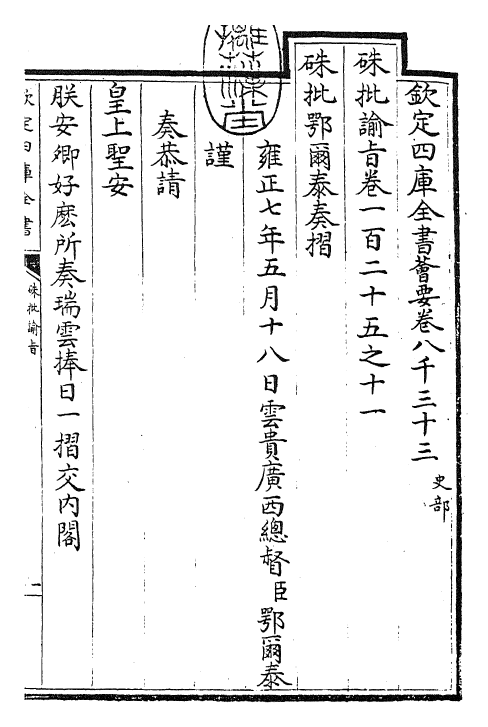 欽定四庫全書薈要卷八千三十三 史部
硃批諭旨卷一百二十五之十一
硃批鄂爾泰奏摺
雍正七年五月十八日雲貴廣西總督臣鄂爾泰
謹
奏恭請
皇上聖安
朕安卿好麽所奏瑞雲捧日一摺交内閣
欽定四庫全書
硃批諭旨